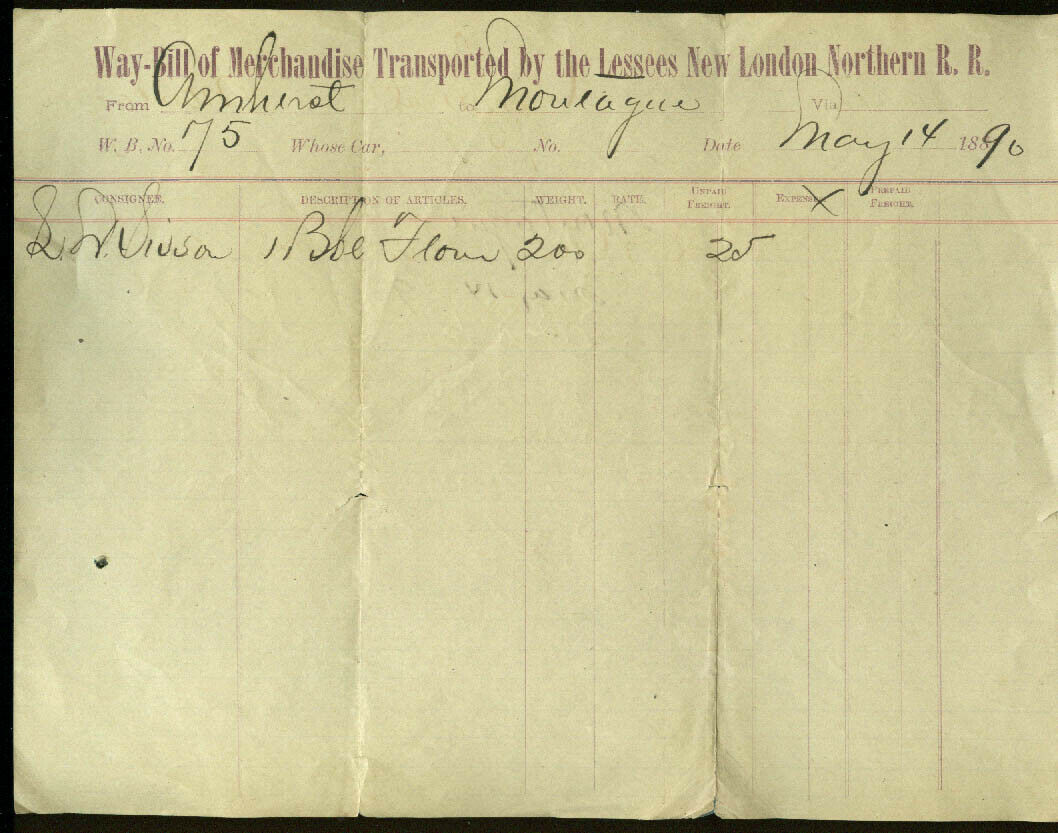 Way-Bill of Merchandise Transported by the Lessees New London Northern R. R.
From Amherst to Montague Via
W. B. No. 75 Whose Car, No. Date May 14 1890
CONSIGNEE. DESCRIPTION OF ARTICLES. WEIGHT. RATE. UNPAID FREIGHT. EXPENSE X PREPAID FREIGHT.
Sisson 1 Bbl Flour 200 25